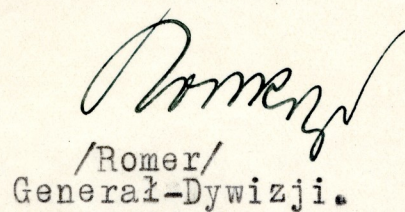 Romer
/Romer/
Generał-Dywizji.